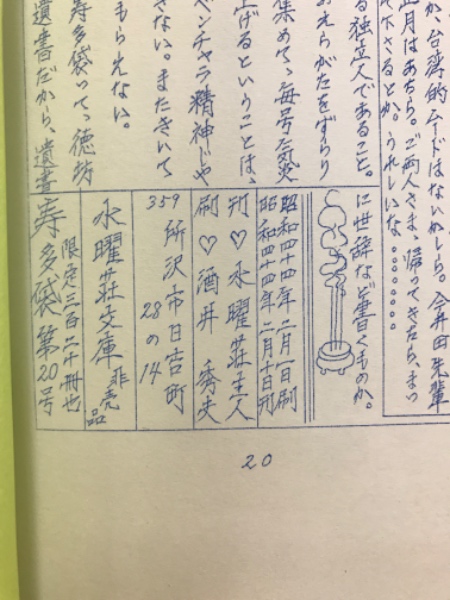 か、台湾的ムードはないかしら。今井田先輩
正月はあちら。ご両人さま、帰ってきたら、まっ
て下さるとか。うれしいな。。。。。。。
に世辞など書くものか。
る独立人であること。
おえらがたをずらり
集めて、毎号た気炎
上げるということは、
ベンチャラ精神じゃ
さない。またきいて
もらえない。
寿多袋って、徳坊
遺書だから、遺書
昭和四十四年二月一日刷
昭和四十四年二月十日刊
刊♡水曜荘主人
刷♡酒井 秀夫
359 所沢市日吉町
28の14
水曜荘文庫 非売品
限定三百二十冊也
寿多袋第20号
20